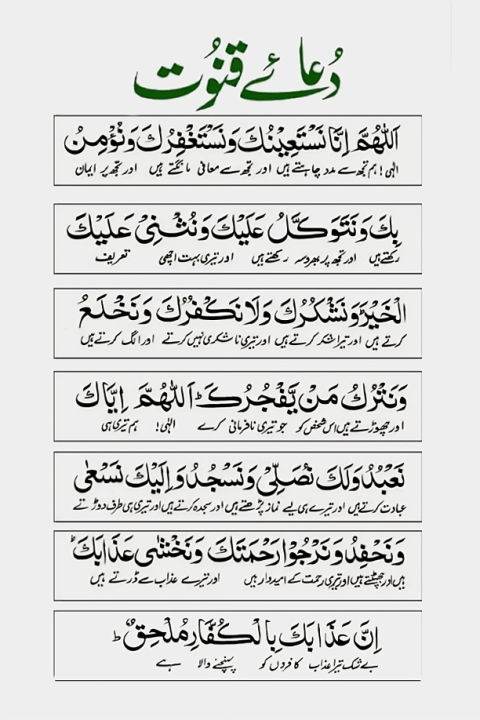 دُعائے قنُوت
اَللّٰهُمَّ اِنَّا نَسْتَعِيْنُكَ وَنَسْتَغْفِرُكَ وَنُؤْمِنُ
الٰہی! ہم تجھ سے مدد چاہتے ہیں اور تجھ سے معافی مانگتے ہیں اور تجھ پر ایمان
بِكَ وَنَتَوَكَّلُ عَلَيْكَ وَنُثْنِيْ عَلَيْكَ
رکھتے ہیں اور تجھ پر بھروسہ رکھتے ہیں اور تیری بہت اچھی تعریف
الْخَيْرَ وَنَشْكُرُكَ وَلَا نَكْفُرُكَ وَنَخْلَعُ
کرتے ہیں اور تیرا شکر کرتے ہیں اور تیری ناشکری نہیں کرتے اور الگ کرتے ہیں
وَنَتْرُكُ مَنْ يَّفْجُرُكَ ؕ اَللّٰهُمَّ اِيَّاكَ
اور چھوڑتے ہیں اس شخص کو جو تیری نافرمانی کرے الٰہی! ہم تیری ہی
نَعْبُدُ وَلَكَ نُصَلِّيْ وَنَسْجُدُ وَاِلَيْكَ نَسْعٰى
عبادت کرتے ہیں اور تیرے ہی لیے نماز پڑھتے ہیں اور سجدہ کرتے ہیں اور تیری ہی طرف دوڑتے
وَنَحْفِدُ وَنَرْجُوْا رَحْمَتَكَ وَنَخْشٰى عَذَابَكَ ؕ
ہیں اور جھپٹتے ہیں اور تیری رحمت کے امیدوار ہیں اور تیرے عذاب سے ڈرتے ہیں
اِنَّ عَذَابَكَ بِالْكُفَّارِ مُلْحِقٌ ؕ
بے شک تیرا عذاب کافروں کو پہنچنے والا ہے